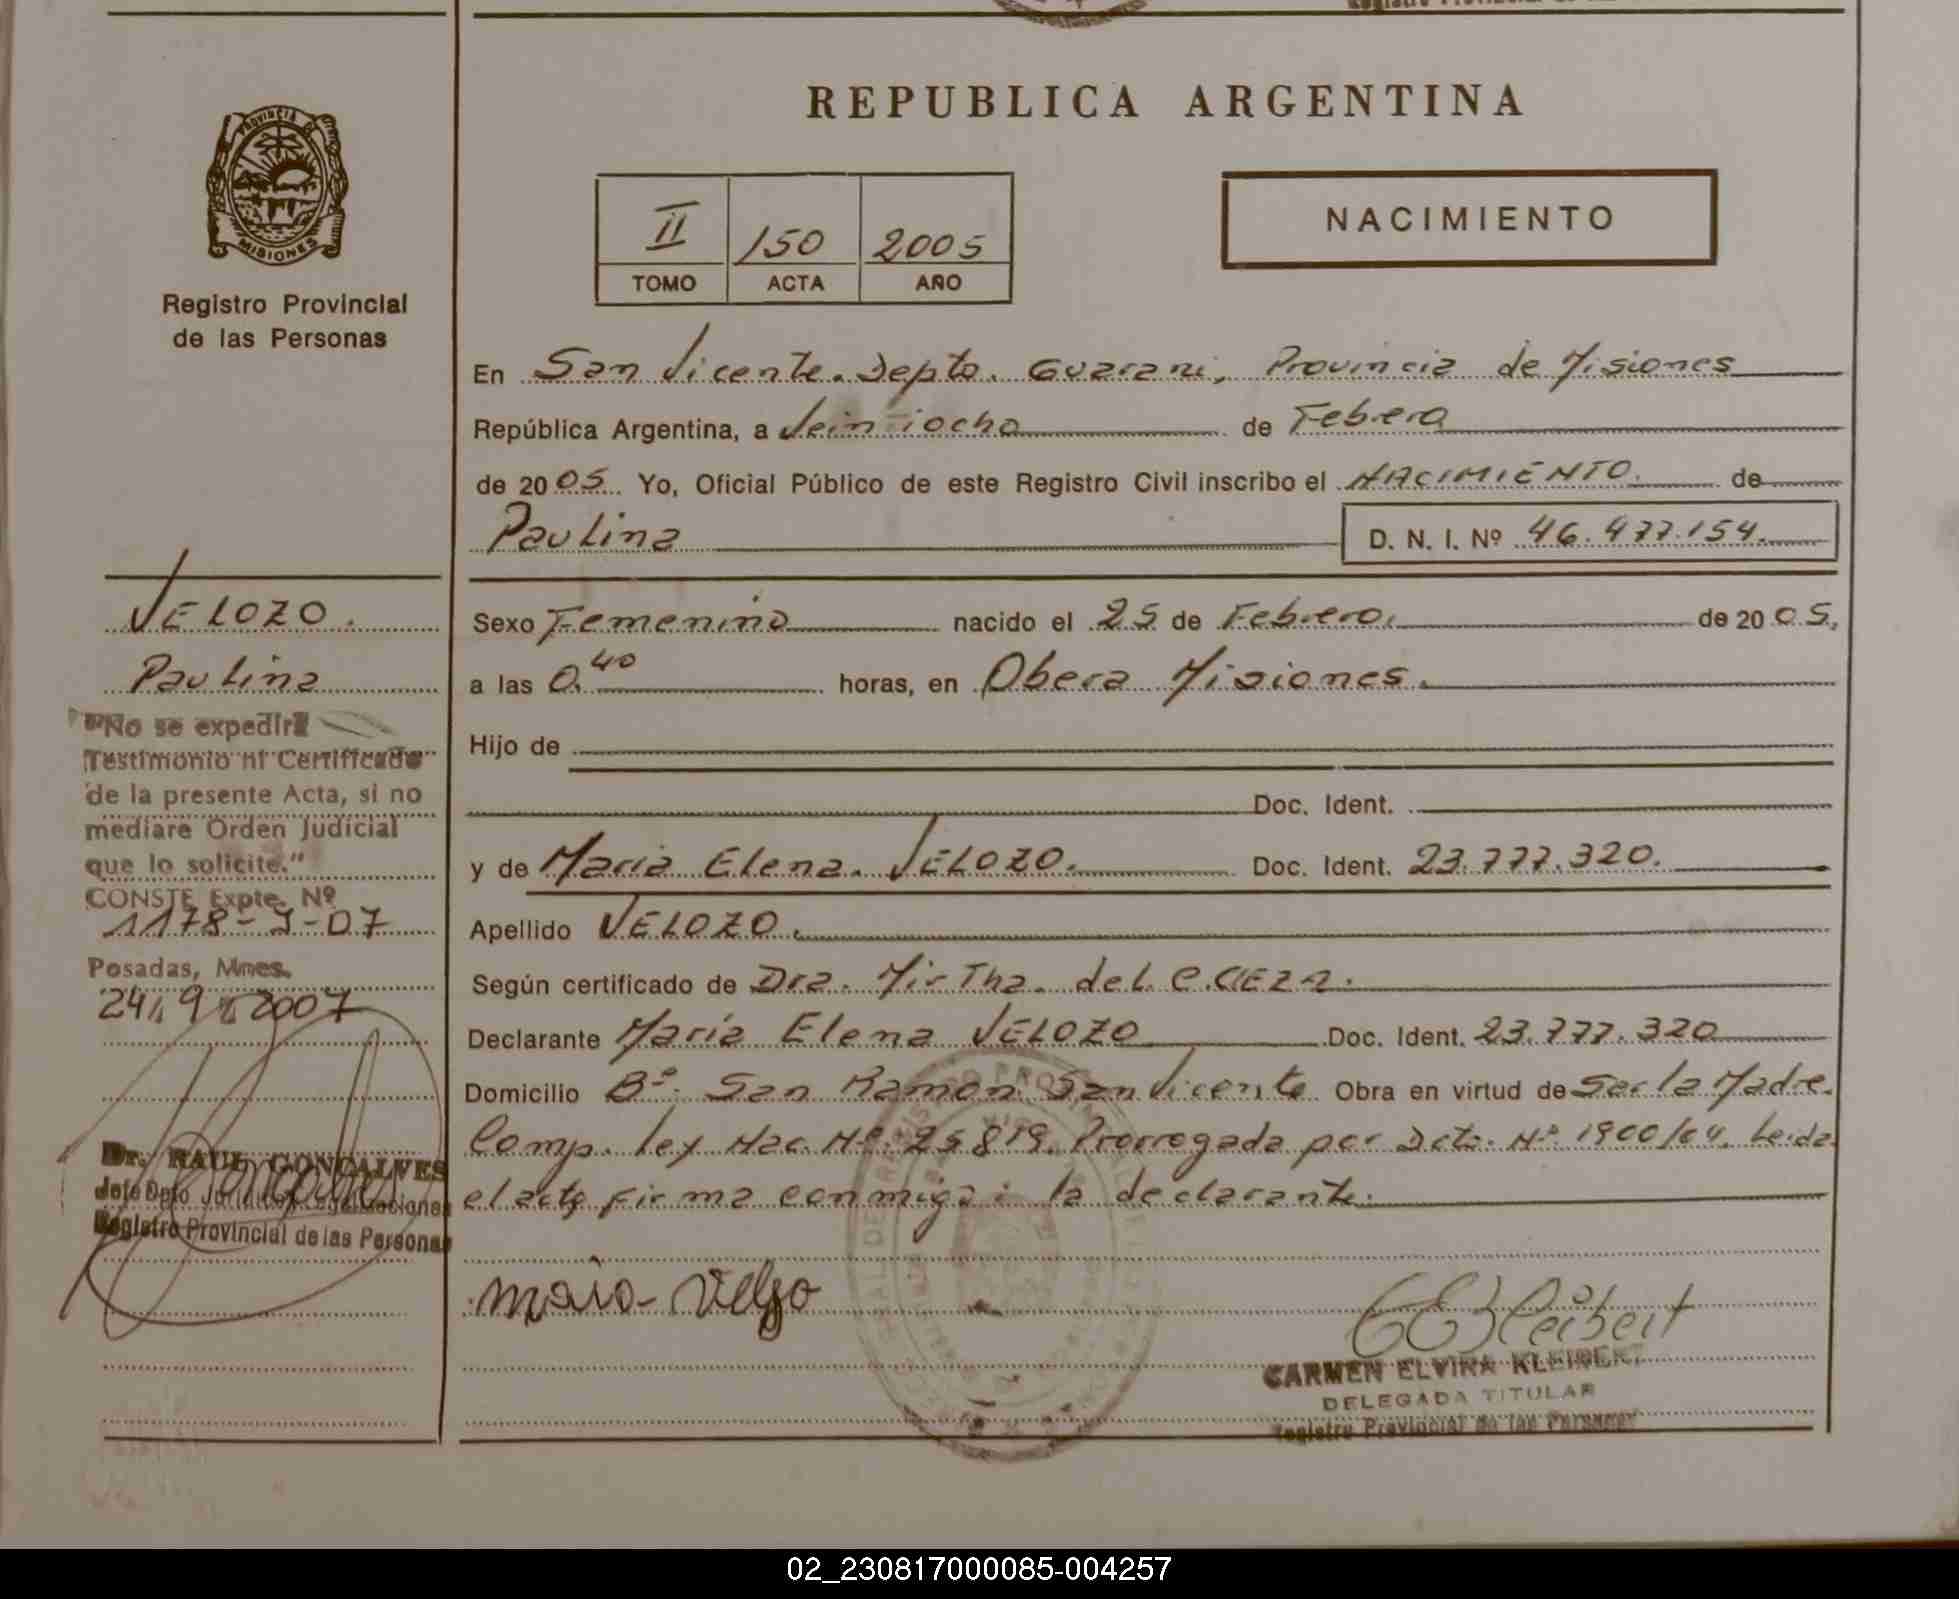 REPUBLICA ARGENTINA
PROVINCIA DE
MISIONES
Registro Provincial
de las Personas
II 150 2005
TOMO ACTA AÑO
NACIMIENTO
En San Vicente. Depto. Guarani, Provincia de Misiones
República Argentina, a Veintiocho de Febrero
de 2005. Yo, Oficial Público de este Registro Civil inscribo el NACIMIENTO. de
Paulina D. N. I. Nº 46.477.154.
VELOZO.
Paulina
"No se expedirá
Testimonio ni Certificado
de la presente Acta, si no
mediare Orden Judicial
que lo solicite."
CONSTE Expte. Nº
1178-J-07
Posadas, Mnes.
24.9.2007
Dr. RAUL GONCALVES
Registro Provincial de las Personas
Sexo Femenino nacido el 25 de Febrero. de 2005.
a las 0.40 horas, en Obera Misiones.
Hijo de
Doc. Ident.
y de Maria Elena. VELOZO. Doc. Ident. 23.777.320.
Apellido VELOZO.
Según certificado de Dra. Mirtha. del C.
Declarante María Elena VELOZO Doc. Ident. 23.777.320
Domicilio Bº. San Ramon. San Vicente Obra en virtud de Ser la Madre.
Comp. Ley Nac. Nº. 25819. Prorrogada por Dcto. Nº 1900/04. Leida
el acta firma conmigo: la declarante.
CARMEN ELVIRA KLEIBERT
DELEGADA TITULAR
Registro Provincial de las Personas
02_230817000085-004257